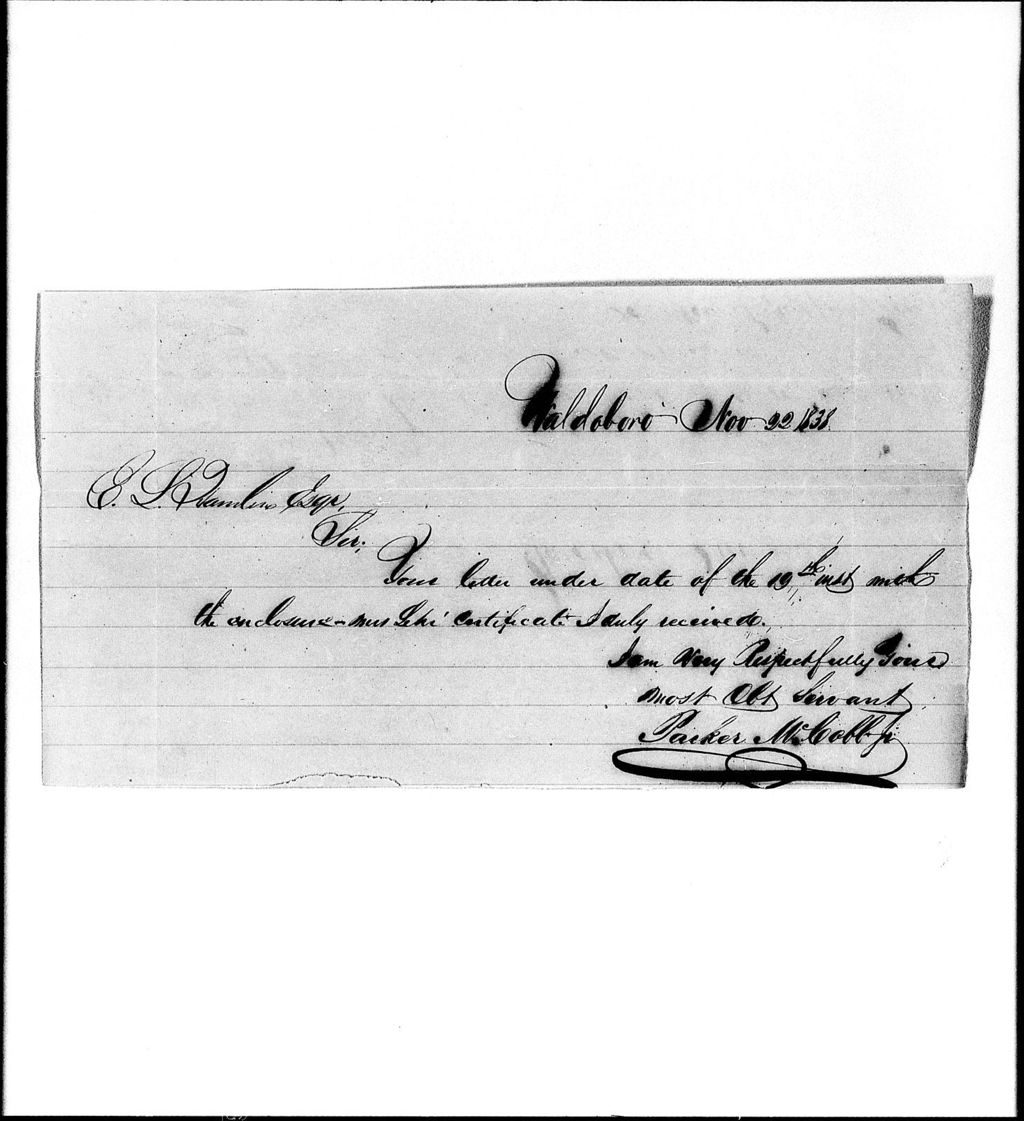 Waldoboro Nov 22 1838.
E. L. Hamlin Esqr,
Sir;
Your letter under date of the 19th inst with
the enclosure - Mrs certificate I duly received.
I am Very Respectfully Your
most Obt Servant
Parker McCobb Jr